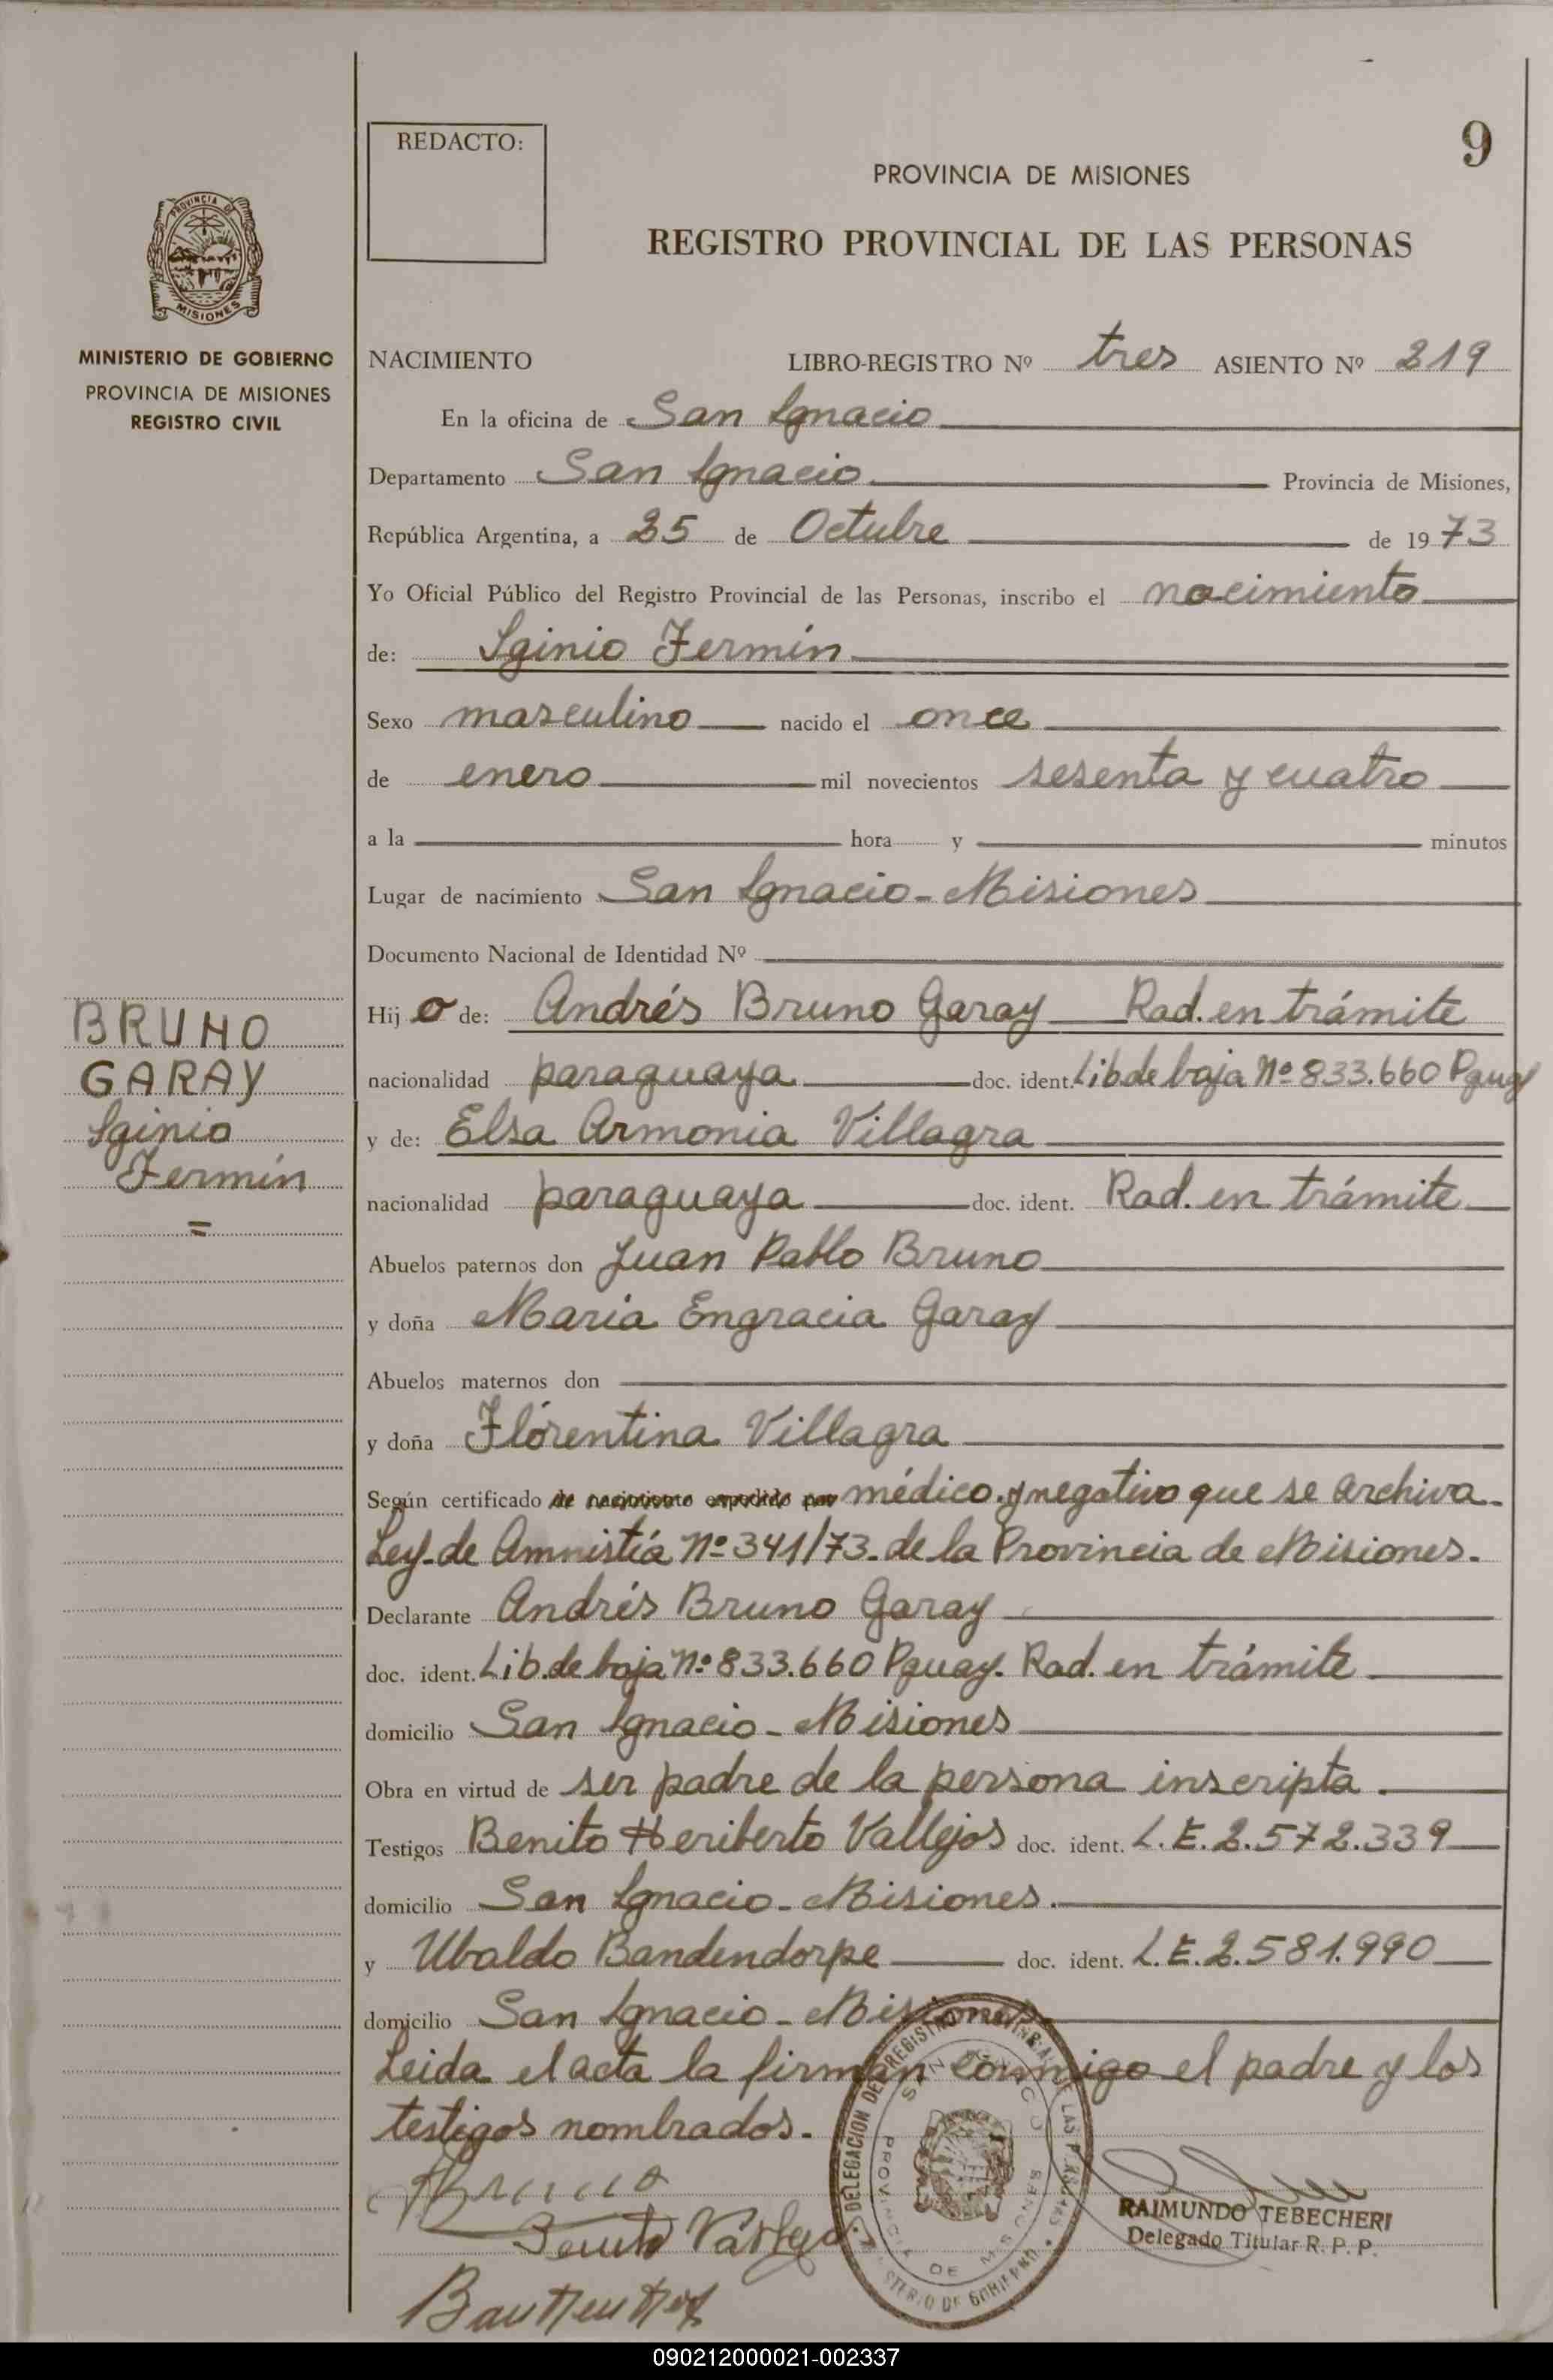 REDACTO:
9
PROVINCIA DE MISIONES
REGISTRO PROVINCIAL DE LAS PERSONAS
PROVINCIA DE
MISIONES
MINISTERIO DE GOBIERNO
PROVINCIA DE MISIONES
REGISTRO CIVIL
NACIMIENTO LIBRO-REGISTRO Nº tres ASIENTO Nº 219
En la oficina de San Ignacio
Departamento San Ignacio Provincia de Misiones,
República Argentina, a 25 de Octubre de 1973
Yo Oficial Público del Registro Provincial de las Personas, inscribo el nacimiento
de: Iginio Fermín
Sexo masculino nacido el once
de enero mil novecientos sesenta y cuatro
a la hora y minutos
Lugar de nacimiento San Ignacio - Misiones
Documento Nacional de Identidad Nº
Hijo de: Andrés Bruno Garay Rad. en trámite
nacionalidad paraguaya doc. ident. Lib de baja Nº 833.660 Pguay
y de: Elsa Armonia Villagra
nacionalidad paraguaya doc. ident. Rad. en trámite
Abuelos paternos don Juan Pablo Bruno
y doña Maria Engracia Garay
Abuelos maternos don
y doña Florentina Villagra
Según certificado de nacimiento expedido por médico y negativo que se archiva.
Ley de Amnistía Nº 341/73. de la Provincia de Misiones.
Declarante Andrés Bruno Garay
doc. ident. Lib. de baja Nº 833.660 Pguay. Rad. en trámite
domicilio San Ignacio - Misiones
Obra en virtud de ser padre de la persona inscripta.
Testigos Benito Heriberto Vallejos doc. ident. L.E. 2.572.339
domicilio San Ignacio - Misiones.
y Ubaldo Bandendorpe doc. ident. L.E. 2.581.990
domicilio San Ignacio - Misiones
Leida el acta la firman conmigo el padre y los
testigos nombrados.
BRUNO
GARAY
Iginio
Fermín
=
Bruno
Benito Vallejos
DELEGACION DEL REGISTRO PROVINCIAL DE LAS PERSONAS
MINISTERIO DE GOBIERNO
SAN IGNACIO
PROVINCIA DE MISIONES
RAIMUNDO TEBECHERI
Delegado Titular R. P. P.
090212000021-002337